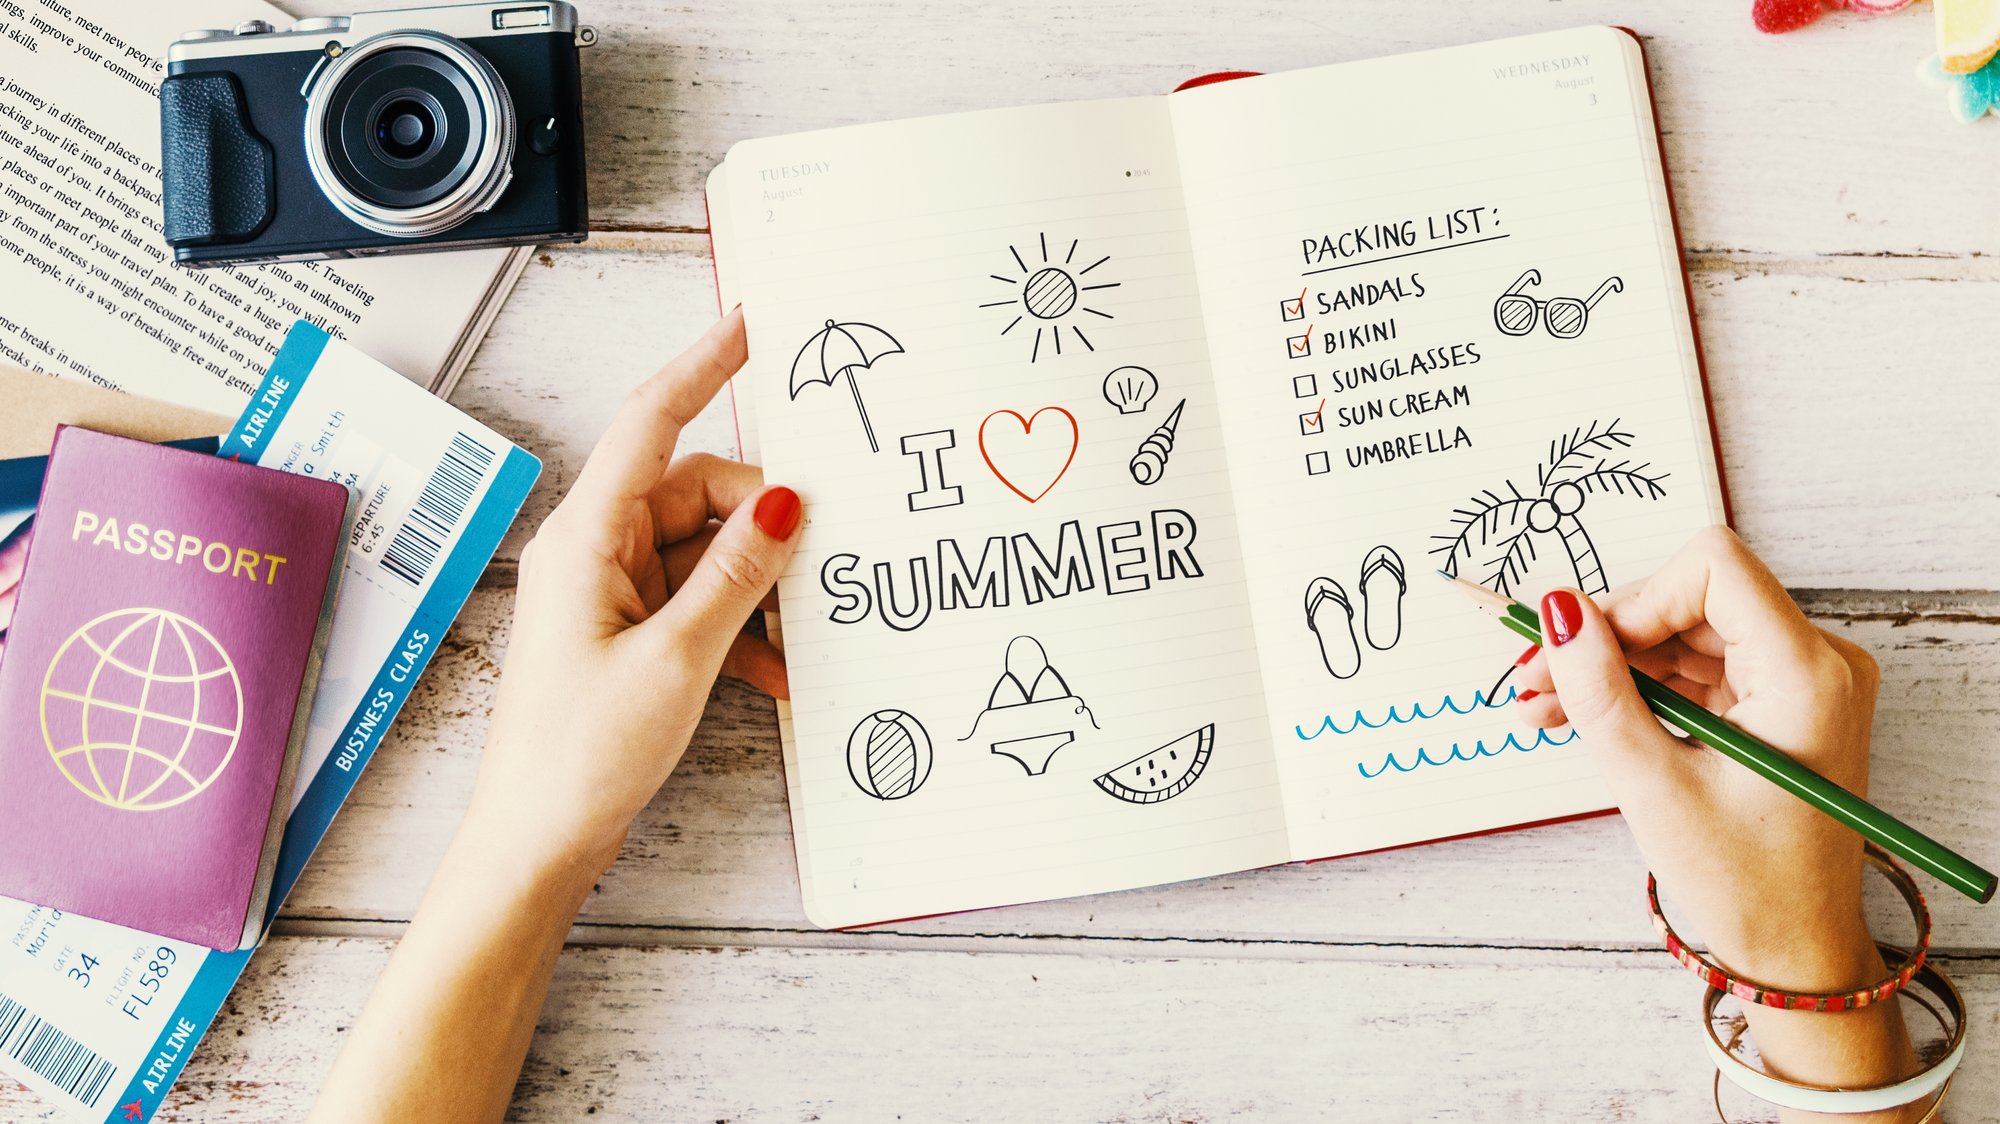 ulture, meet new people
ings, improve your communic
al skills.
a journey in different places or to
acking your life into a backpack
uture ahead of you. It brings exc
places or meet people that may or will create a huge
important part of your travel plan. To have a good tra
ay from the stress you might encounter while on you
some people, it is a way of breaking free and gettin
ill and joy, you will dis-
ing into an unknown
er. Traveling
mer breaks in universitie
breaks in
AIRLINE
a Smith
DEPARTURE
6:45
BUSINESS CLASS
PASSPORT
PASSEN
Maria
GATE
34
FLIGHT NO.
FL589
AIRLINE
TUESDAY
August
2
20:45
I
SUMMER
WEDNESDAY
August
3
PACKING LIST:
SANDALS
BIKINI
SUNGLASSES
SUN CREAM
UMBRELLA